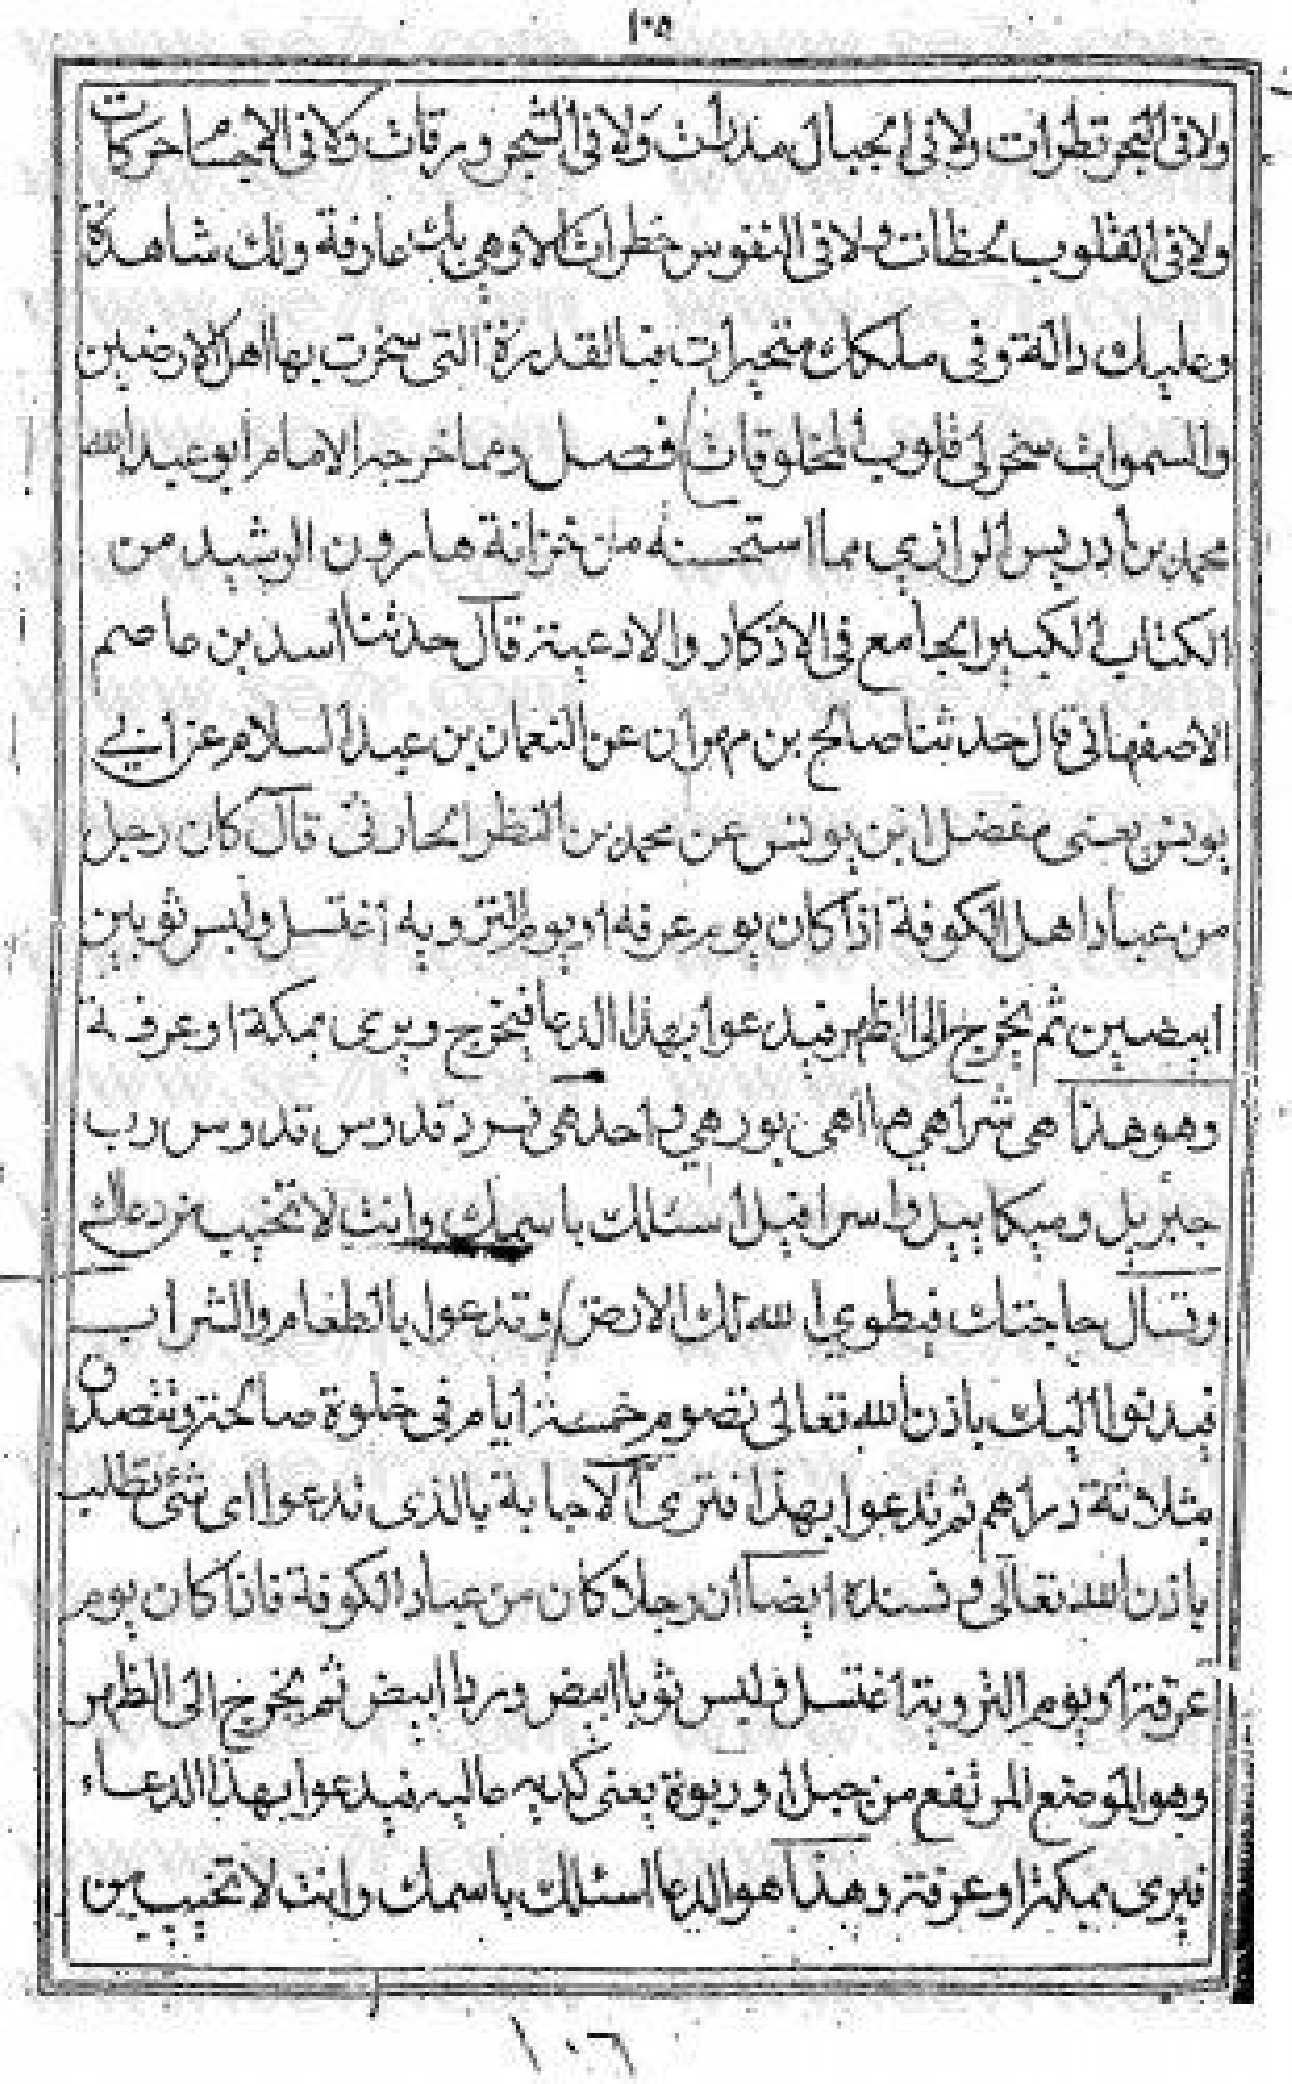 ١٠٥
ولا فى البحر قطرات ولا فى الجبال مدرات ولا فى الشجر ورقات ولا فى الاجسام حركات
ولا فى القلوب لحظات ولا فى النفوس خطرات الا وهى بك عارفة ولك شاهدة
وعليك دالة وفى ملكك متحيرات فبالقدرة التى سخرت بها اهل الارضين
والسموات سخر لى قلوب المخلوقات) فصل ومما خرجه الامام ابو عبد الله
محمد بن ادريس الرازى مما استحسنه من خزانة هارون الرشيد من
الكتاب الكبير الجامع فى الاذكار والادعية قال حدثنا اسد بن عاصم
الاصفهانى قال حدثنا صالح بن مهران عن النعمان بن عبد السلام عن ابي
يونس يعنى مفضل ابن يونس عن محمد بن النظر الحارثى قال كان رجل
من عباد اهل الكوفة اذا كان يوم عرفه او يوم الترويه اغتسل ولبس ثوبين
ابيضين ثم يخرج الى الظهر فيدعوا بهذا الدعا فيخرج ويرى بمكة او عرفة
وهو هذا هى شراهي ها اهى نور هي واحد هى فرد قدوس قدوس رب
جبريل وميكاييل واسرافيل اسئلك باسمك وانت لا تخيب من دعاك
وتسال حاجتك فيطوي الله لك الارض) وتدعوا بالطعام والشراب
فيدنوا اليك باذن الله تعالى تصوم خمسة ايام فى خلوة صالحة وتتصدق
بثلاثة دراهم ثم تدعوا بهذا فترى الاجابة بالذى تدعوا اى شئ تطلب
باذن الله تعالى وفسنده ايضا ان رجلا كان من عباد الكوفة فاذا كان يوم
عرفة او يوم التروية اغتسل ولبس ثوبا ابيض وردا ابيض ثم يخرج الى الظهر
وهو الموضع المرتفع من جبل او ربوة يعنى كديه عاليه فيدعوا بهذا الدعاء
فيرى بمكة او عرفة وهذا هو الدعا اسئلك باسمك وانت لا تخيب من
١٠٦